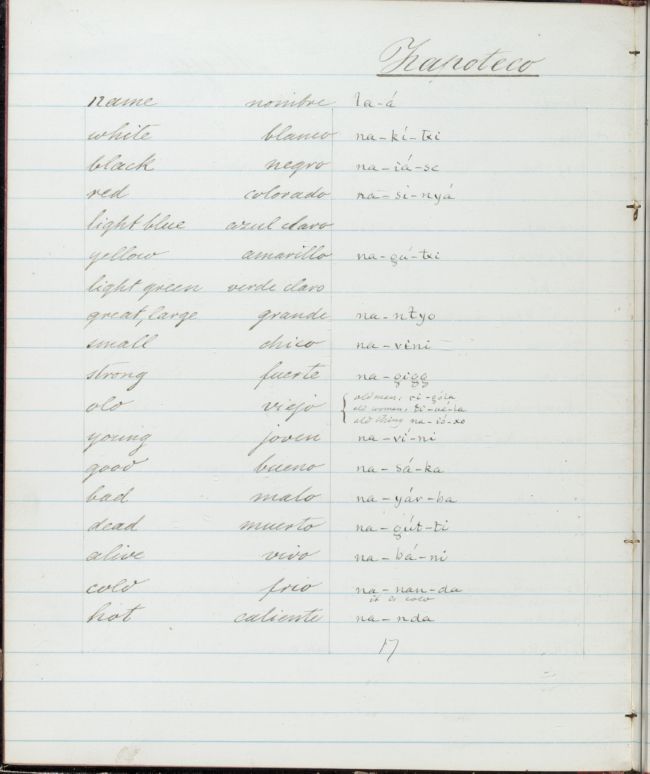 Zapoteco
name nombre la-á
white blanco na-kí-txi
black negro na-iá-se
red colorado na-si-nyá
light blue azul claro
yellow amarillo na-gú-txi
light green verde claro
great, large grande na-ntyo
small chico na-vini
strong fuerte
old viejo { old man, vi-góla
old woman,
old thing na-ió-xo
young joven na-ví-ni
good bueno na-sá-ka
bad malo na-yár-ba
dead muerto na-gút-ti
alive vivo na-bá-ni
cold frio na-nan-da
it is cold
hot caliente na-nda
17